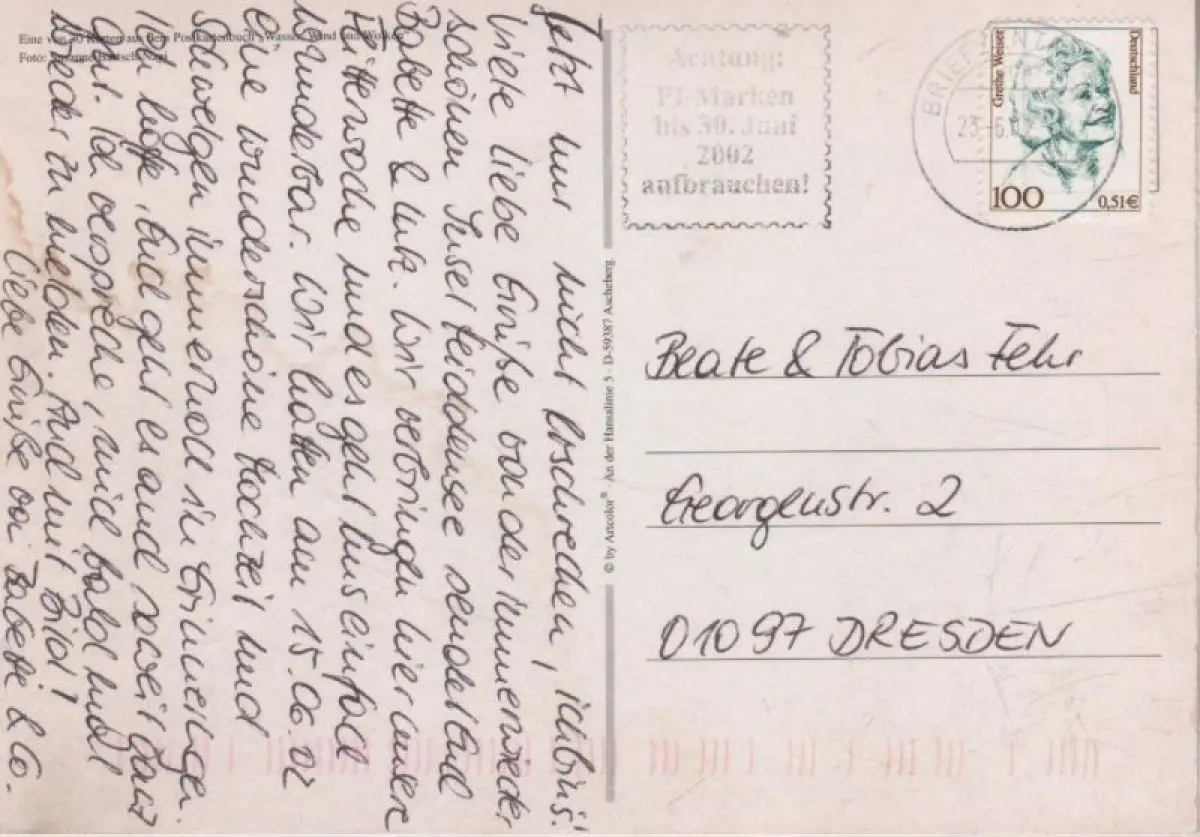 Eine von 30 Karten aus dem Postkartenbuch „Wasser, Wind und Wolken“
Foto: Susanne
Jetzt nur nicht erschrecken, ichbins!
Viele liebe Grüße von der immerwieder
schönen Insel Hiddensee sendet Euch
Babett & Wir verbringen hier unsere
Flitterwoche und es geht uns einfach
wunderbar. Wir hatten am 15.06.02
eine wunderschöne Hochzeit und
schwelgen immernoch in Erinnerungen.
Ich hoffe, Euch geht es auch soweit ganz
gut. Ich verspreche, mich bald mal
wieder zu melden. Auch mit Bild!
Liebe Grüße von Babett & Co.
© by Artcolor® · An der Hansalinie 5 · D-59387 Ascheberg
Achtung:
PF-Marken
bis 30. Juni
2002
aufbrauchen!
23.-6.02
Grethe Weiser
Deutschland
100
0,51€
Beate & Tobias Fehr
Georgenstr. 2
01097 DRESDEN